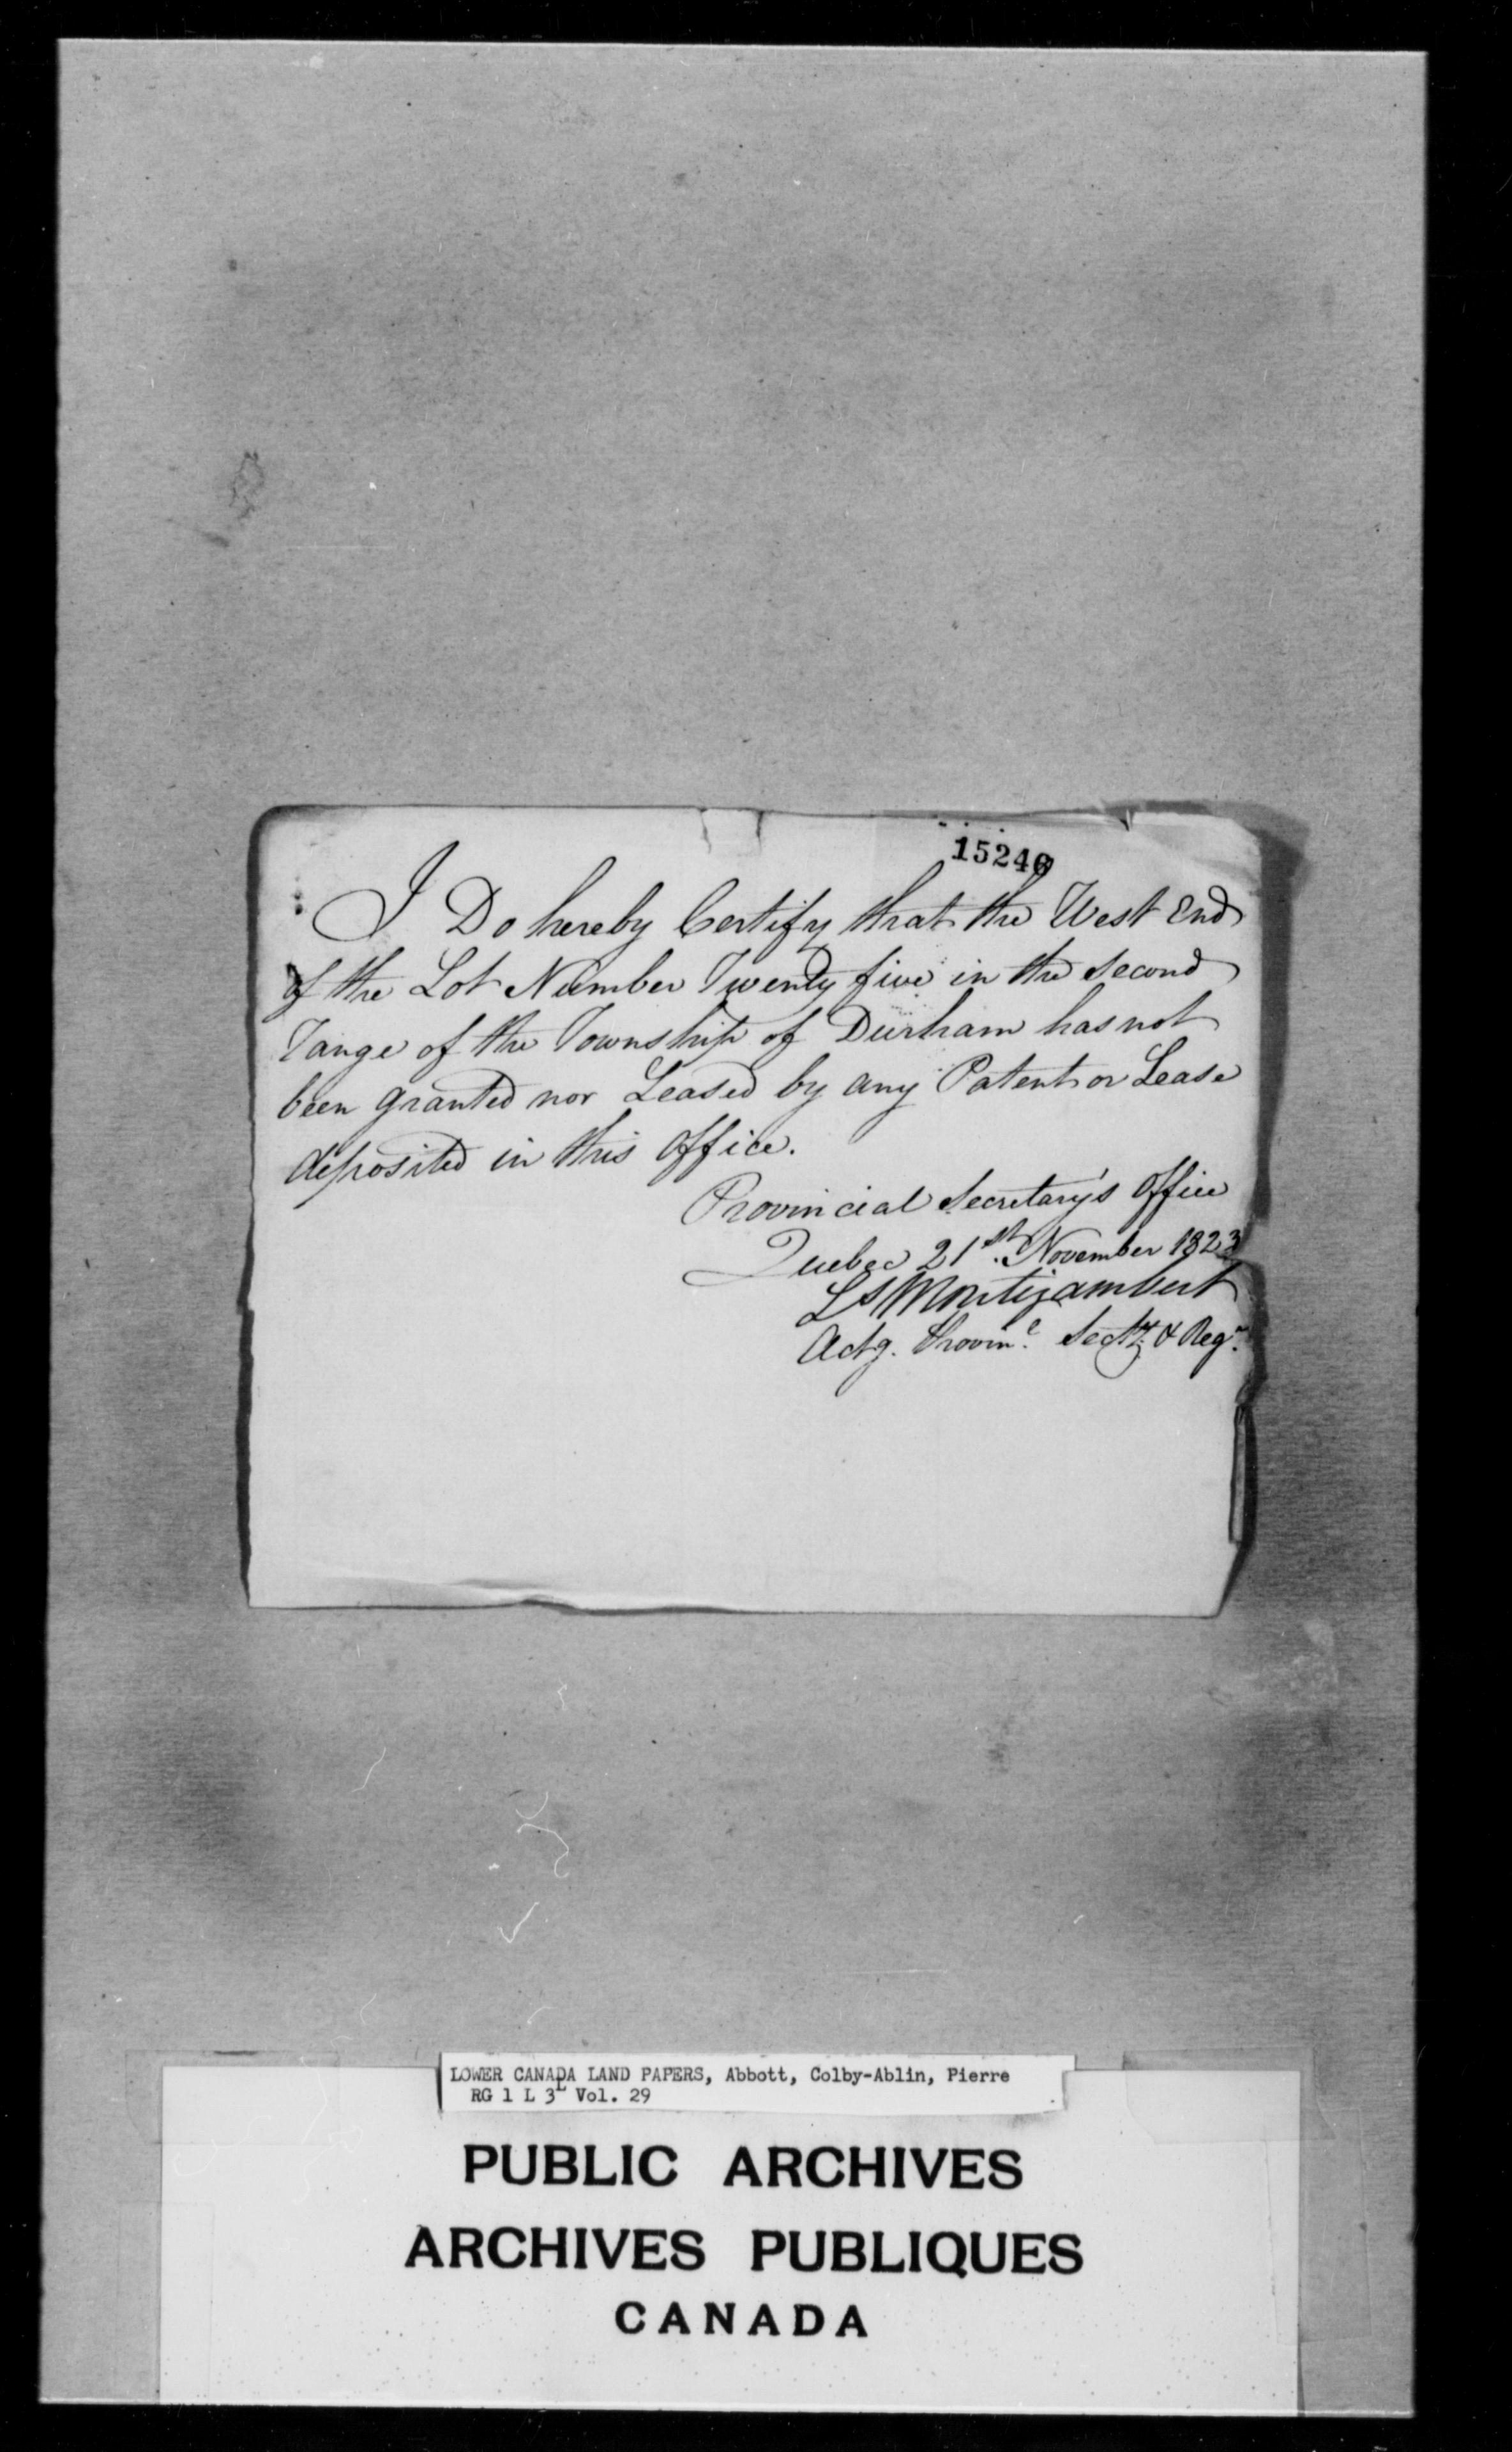 15240
I Do hereby Certify that the West End
of the Lot Number Twenty five in the Second
range of the Township of Durham has not
been granted nor Leased by any Patent or Lease
deposited in this Office.
Provincial Secretary's Office
Quebec 21st. November 1823
Ls Montizambert
Actg. Provinl. Secty. & Regr.
LOWER CANADA LAND PAPERS, Abbott, Colby-Ablin, Pierre
RG 1 L 3L Vol. 29
PUBLIC ARCHIVES
ARCHIVES PUBLIQUES
CANADA